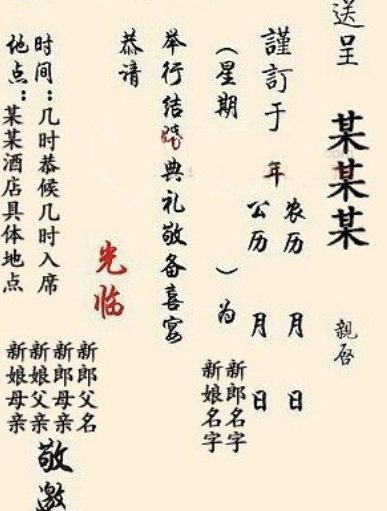 送呈 某某某 親启
謹訂于 年
农历 月 日
公历 月 日
（星期 ）为
新郎名字
新娘名字
举行结典礼敬备喜宴
恭请
光临
时间：几时恭候几时入席
地点：某某酒店具体地点
新郎父名
新郎母亲
新娘父亲
新娘母亲
敬邀